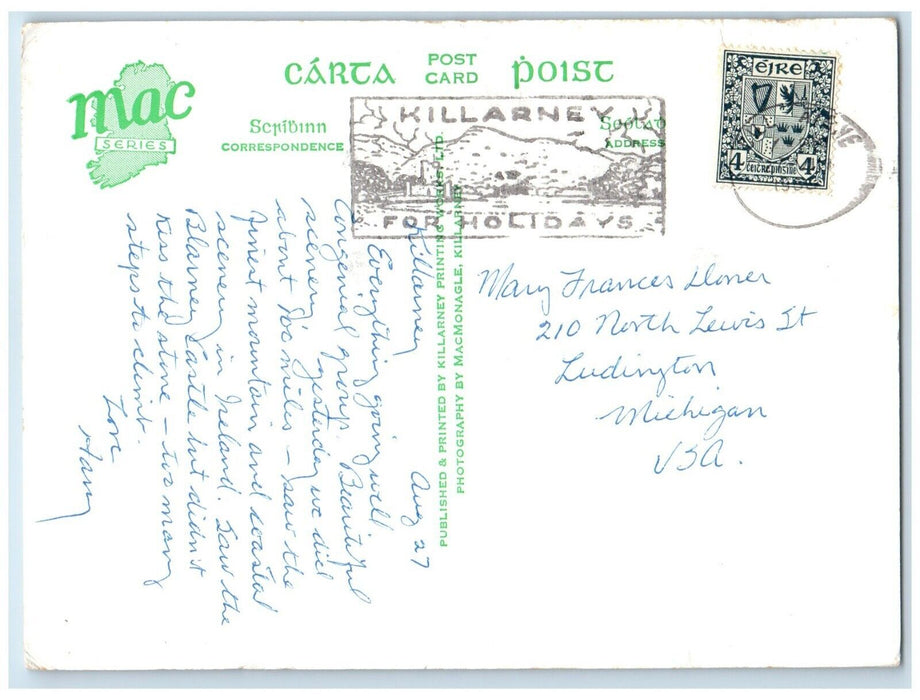 mac
SERIES
CÁRTA
POST
CARD
ṗoist
Scríḃinn
CORRESPONDENCE
Seolaḋ
ADDRESS
KILLARNEY
FOR HOLIDAYS
ÉIRE
4 4
ceitre pinsine
PUBLISHED & PRINTED BY KILLARNEY PRINTING WORKS LTD.
PHOTOGRAPHY BY MACMONAGLE, KILLARNEY
Killarney Aug 27
Everything going well
Congenial group. Beautiful
scenery, yesterday we did
about 100 miles – saw the
finest mountain and coastal
scenery in Ireland. Saw the
Blarney Castle but didn't
kiss the stone – too many
steps to climb.
Love
Harry
Mary Frances Doner
210 North Lewis St
Ludington
Michigan
USA.